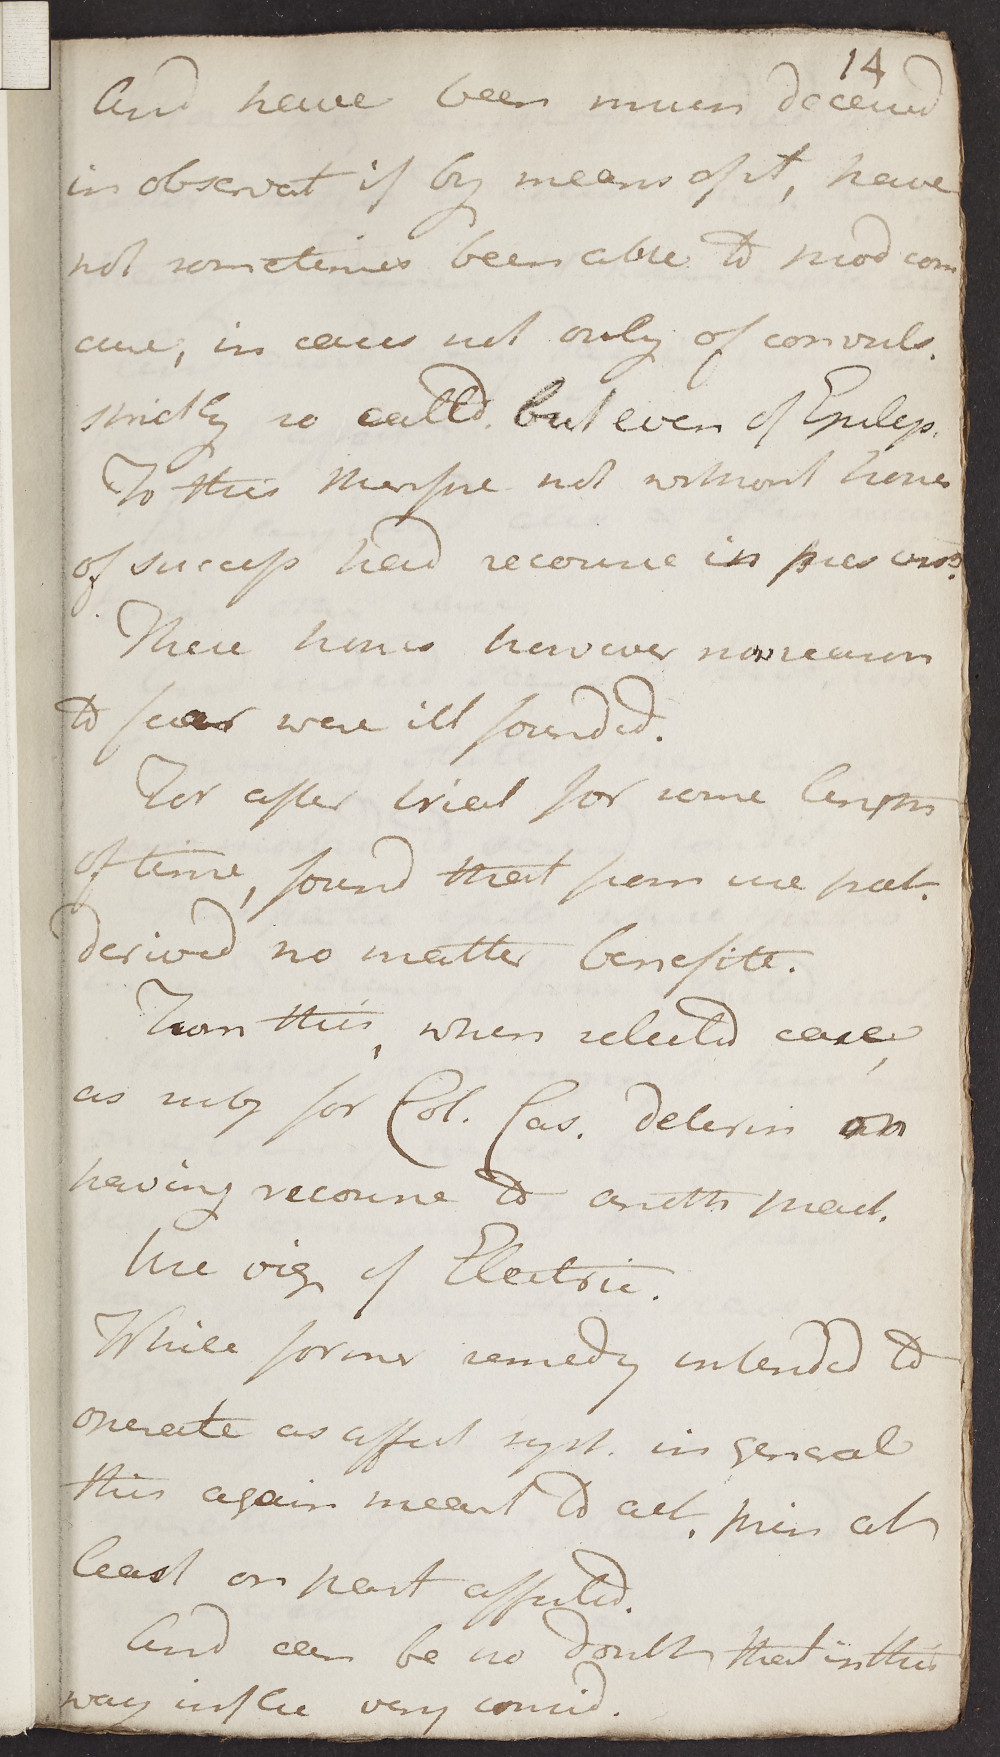 14
And have been much deceived
in observat if by means of it, have
not sometimes been able to prod com
cure, in cases not only of convuls.
strictly so called but even of Epilep.
To this therefore not without hopes
of success had recourse in pres
These hopes however now reason
to fear were ill founded.
For after trial for some length
of time, found that from use pat.
derived no matter benefite.
From this, when selected case,
as subj for Col. Cas. deterin on
having recourse to anoth pract.
the viz of Electric.
While former remedy intended to
operate as affect syst. in general
this again meant to act, prin at
least on part affected.
And can be no doubt that in this
way influ very consid.